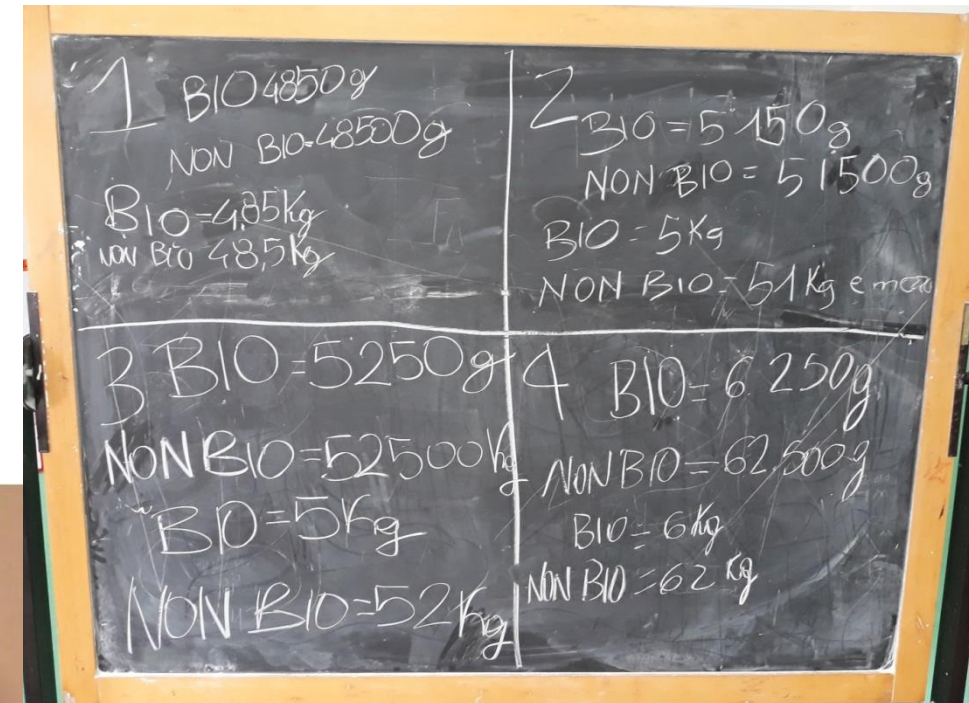 1
BIO 4850g
NON BIO=48500g
BIO=4,85Kg
NON BIO 48,5Kg
2
BIO = 5150g
NON BIO = 51500g
BIO = 5Kg
NON BIO = 51Kg e
3 BIO=5250g
NON BIO=52500Kg
BIO=5Kg
NON BIO=52Kg
4 BIO= 6250g
NON BIO=62.500g
BIO = 6Kg
NON BIO =62 Kg